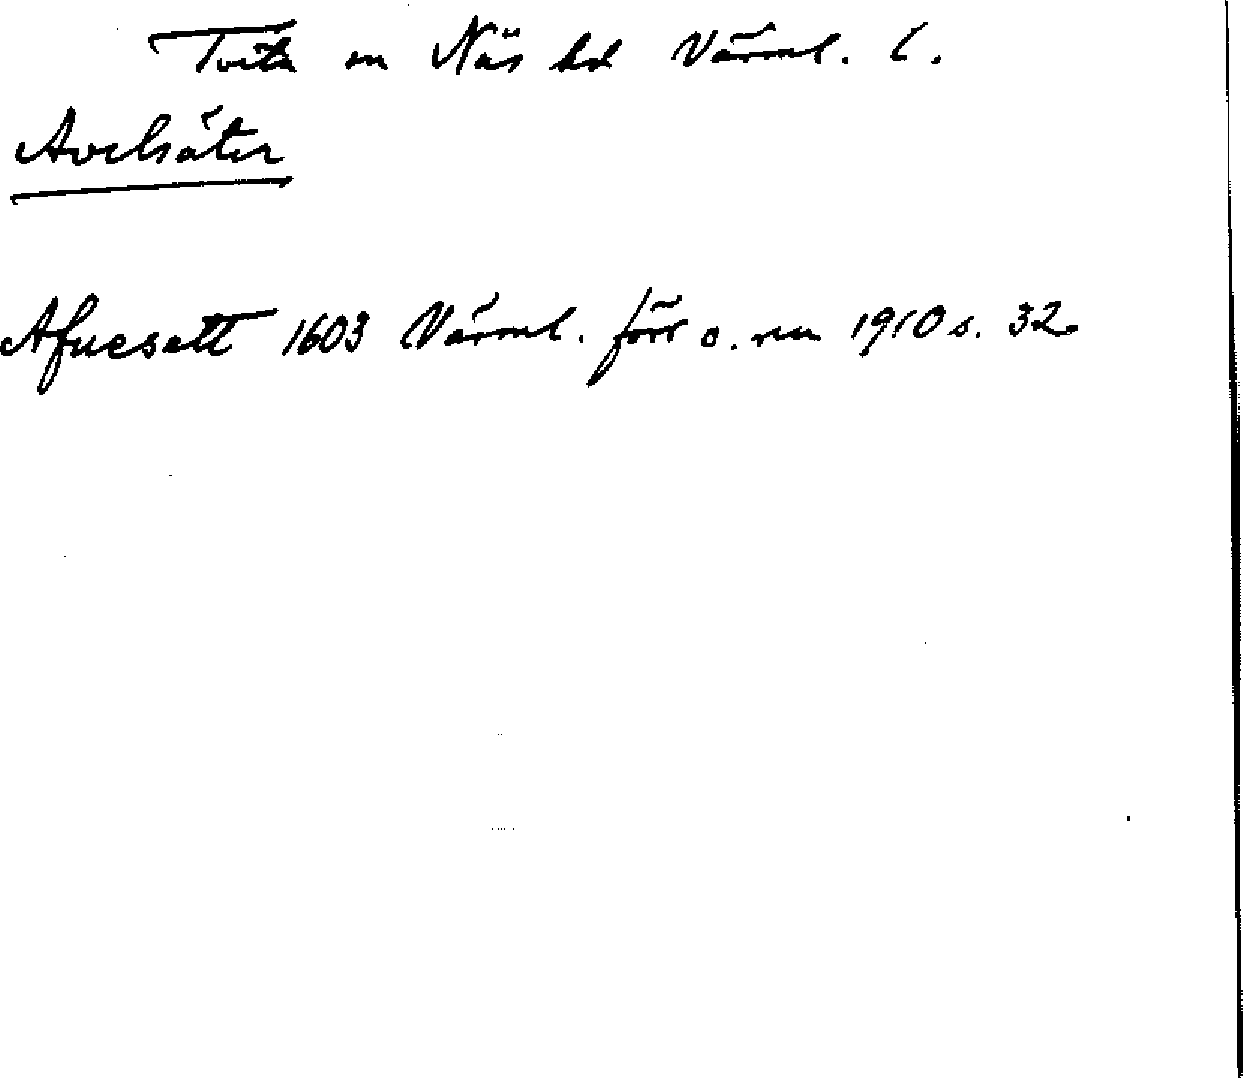 Tveta sn Näs hd Värml. l.
Avelsäter
Afuesett 1603 Värml. förr o. nu 1910 s. 32